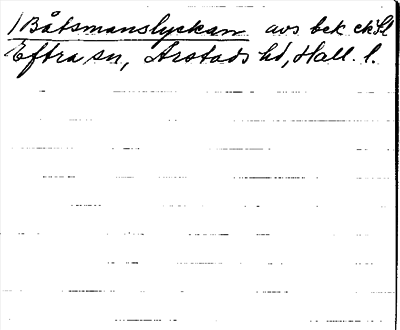 1) Båtsmanslyckan avs bek ekbl
Eftra sn, Årstads hd, Hall. l.